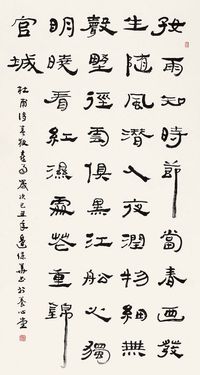 好雨知時節當春迺發
生隨風潛入夜潤物細無
聲野徑雲俱黑江船火獨
明曉看紅濕處花重錦
官城
杜甫詩春夜喜雨歲次己丑年書於養心堂